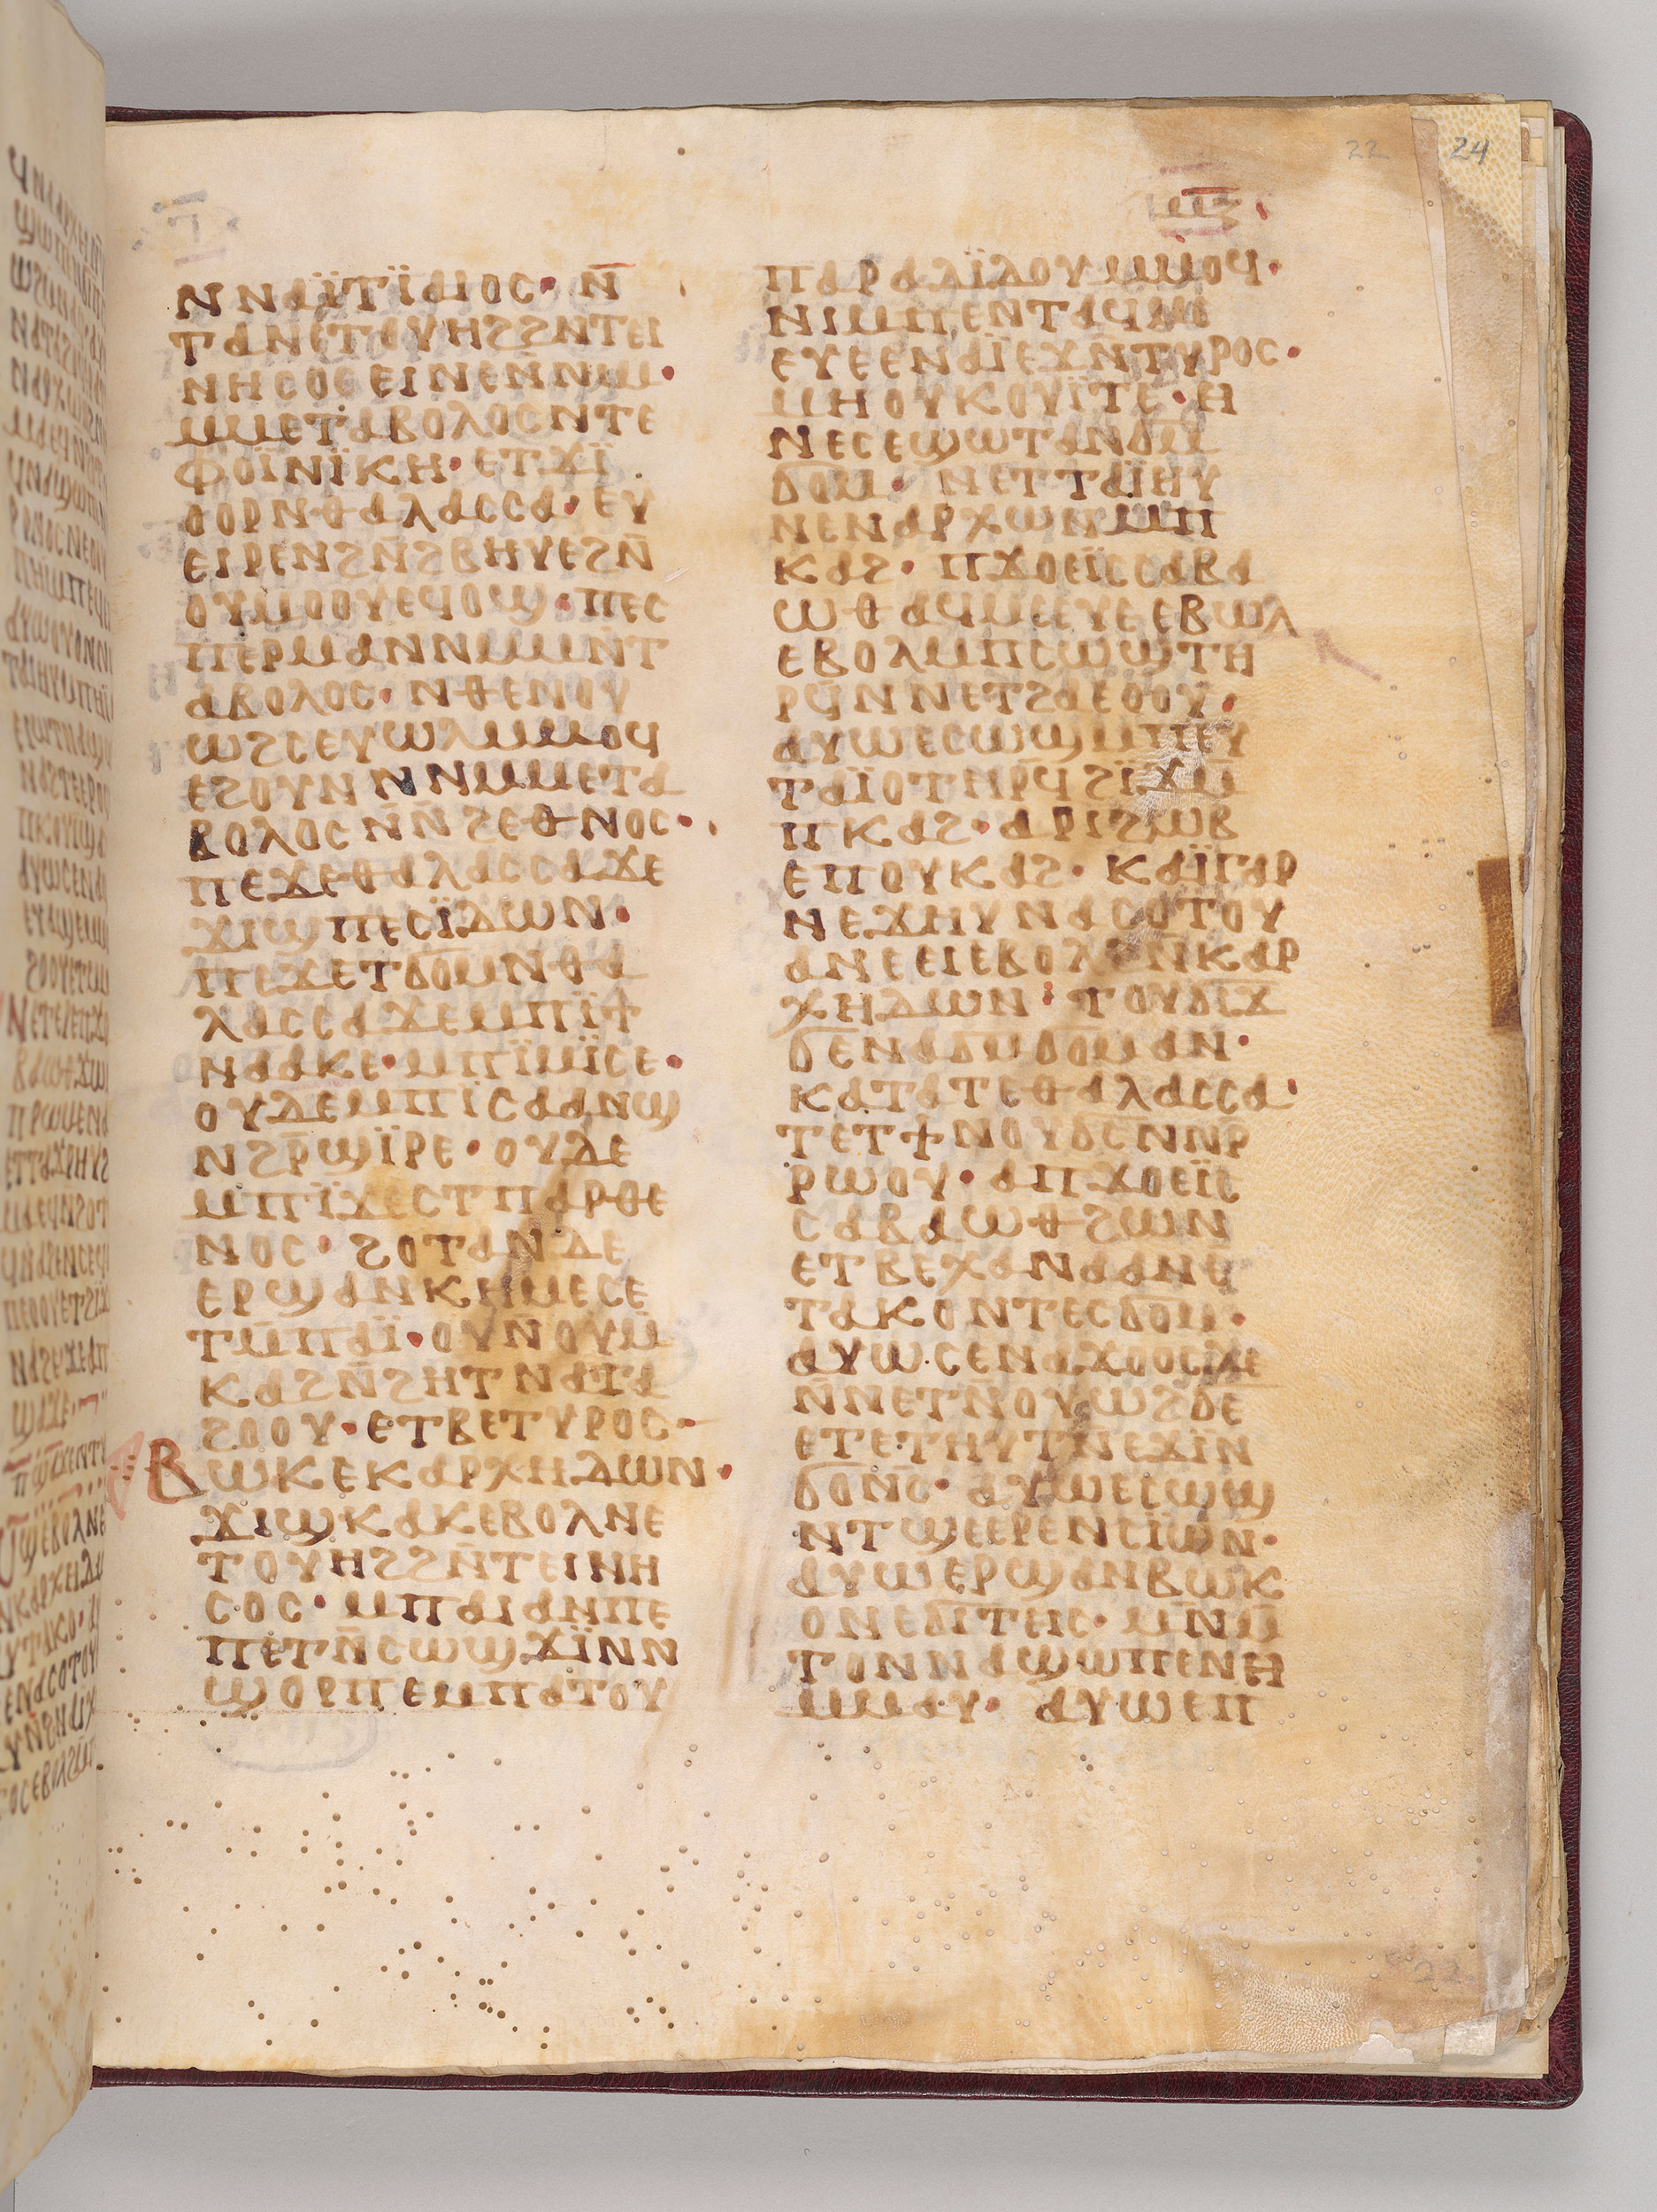 22
24
ⲙⲍ
ⲛⲛⲁⲓ̈ⲧⲓ̈ⲙⲟⲥ· ⲛ̅
ⲧⲁⲛⲉⲧⲟⲩⲏϩϩⲛⲧⲉⲓ
ⲛⲏⲥⲟⲥⲉⲓⲛⲉⲛ̅ⲛⲙ·
ⲙⲉⲧⲁⲃⲟⲗⲟⲥⲛⲧⲉ
ⲫⲟⲓ̈ⲛⲓ̈ⲕⲏ· ⲉⲧϫⲓ̈
ⲟⲟⲣⲛⲑⲁⲗⲁⲥⲥⲁ· ⲉⲩ
ⲉⲓⲣⲉⲛϩⲛ̅ϩⲃⲏⲩⲉϩⲛ̅
ⲟⲩⲙⲟⲟⲩⲉϥⲟϣ· ⲡⲉⲥ
ⲡⲉⲣⲙⲁⲛⲛⲙⲙⲛ̅ⲧ
ⲁⲃⲟⲗⲟⲥ· ⲛⲑⲉⲛⲟⲩ
ⲱϩⲥⲉⲩⲱⲗⲙⲙⲟϥ
ⲉϩⲟⲩⲛⲛⲛⲙⲙⲉⲧⲁ
ⲃⲟⲗⲟⲥⲛ̅ⲛ̅ϩⲉⲑⲛⲟⲥ·
ⲡⲉϫⲉⲑⲁⲗⲁⲥⲥⲁϫⲉ
ϫⲓϣⲡⲉⲥⲓ̈ⲇⲱⲛ·
ⲡⲉϫⲉⲧϭⲟⲙⲛⲑⲁ
ⲗⲁⲥⲥⲁϫⲉⲙⲡⲓ̈ϯ
ⲛⲁⲁⲕⲉ· ⲙⲡⲓ̈ⲙⲓ̈ⲥⲉ·
ⲟⲩⲇⲉⲙⲡⲓ̈ⲥⲁⲁⲛϣ
ⲛϩⲣ̅ϣⲓ̈ⲣⲉ· ⲟⲩⲇⲉ
ⲙⲡⲓ̈ϫⲉⲥⲧⲡⲁⲣⲑⲉ
ⲛⲟⲥ· ϩⲟⲧⲁⲛⲇⲉ
ⲉⲣϣⲁⲛⲕⲏⲙⲉⲥⲉ
ⲧⲙ̅ⲡⲁⲓ̈· ⲟⲩⲛ̅ⲟⲩⲙ̅
ⲕⲁϩⲛ̅ϩⲏⲧⲛⲁⲧⲁ
ϩⲟⲟⲩ· ⲉⲧⲃⲉⲧⲩⲣⲟⲥ·
ⲃⲱⲕⲉⲕⲁⲣⲭⲏⲇⲱⲛ·
ϫⲓϣⲕⲁⲕⲉⲃⲟⲗⲛⲉ
ⲧⲟⲩⲏϩϩⲛ̅ⲧⲉⲓⲛⲏ
ⲥⲟⲥ· ⲙⲡⲁⲓⲁⲛⲡⲉ
ⲡⲉⲧⲛ̅ⲥⲱϣϫⲓ̈ⲛⲛ
ϣⲟⲣⲡⲉⲙⲡⲁⲧⲟⲩ
ⲡⲁⲣⲁⲇⲓ̈ⲇⲟⲩⲙⲙⲟϥ·
ⲛⲓⲙⲡⲉⲛⲧⲁϥⲙⲉ
ⲉⲩⲉⲉⲛⲁⲓ̈ⲉϫⲛⲧⲩⲣⲟⲥ·
ⲙⲏⲟⲩⲕⲟⲩⲓ̈ⲧⲉ· ⲏ
ⲛⲉⲥⲉϣⲱⲧⲁⲛϭⲙ̅
ϭⲟⲙ· ⲛⲉⲧⲧⲁⲓ̈ⲏⲩ
ⲛⲉⲛⲁⲣⲭⲱⲛⲙⲡ
ⲕⲁϩ· ⲡϫⲟⲉⲓ̈ⲥⲥⲁⲃⲁ
ⲱⲑⲁϥⲙⲉⲉⲩⲉⲉⲃⲱⲗ
ⲉⲃⲟⲗⲙⲡⲥⲱϣⲧⲏ
ⲣϥⲛⲛⲉⲧϩⲁⲉⲟⲟⲩ·
ⲁⲩⲱⲉⲥⲱϣⲙⲡⲉⲩ
ⲧⲁⲓ̈ⲟⲧⲏⲣϥϩⲓ̈ϫⲙ̅
ⲡⲕⲁϩ· ⲁⲣⲓϩⲱⲃ
ⲉⲡⲟⲩⲕⲁϩ· ⲕⲁⲓ̈ⲅⲁⲣ
ⲛⲉϫⲏⲩⲛⲁⲥⲟⲧⲟⲩ
ⲁⲛⲉⲉⲓⲉⲃⲟⲗϩⲛ̅ⲕⲁⲣ
ⲭⲏⲇⲱⲛ· ⲧⲟⲩϭⲓϫ
ϭⲉⲛⲁϭⲙϭⲟⲙⲁⲛ·
ⲕⲁⲧⲁⲧⲉⲑⲁⲗⲁⲥⲥⲁ·
ⲧⲉⲧϯⲛⲟⲩϭⲥⲛⲛⲣ
ⲣⲱⲟⲩ· ⲁⲡϫⲟⲉⲓ̈ⲥ
ⲥⲁⲃⲁⲱⲑϩⲱⲛ
ⲉⲧⲃⲉⲭⲁⲛⲁⲁⲛⲉ
ⲧⲁⲕⲟⲛⲧⲉⲥϭⲟⲙ·
ⲁⲩⲱⲥⲉⲛⲁϫⲟⲟⲥϫⲉ
ⲛ̅ⲛⲉⲧⲛ̅ⲟⲩⲱϩϭⲉ
ⲉⲧⲉⲧⲏⲩⲧⲛⲉϫⲓ̈ⲛ
ϭⲟⲛⲥ̅· ⲁⲩⲱⲉⲥⲱϣ
ⲛⲧϣⲉⲉⲣⲉⲛⲥⲓⲱⲛ·
ⲁⲩⲱⲉⲣϣⲁⲛⲃⲱⲕ
ⲟⲛⲉϭⲓⲧⲏⲥ· ⲙⲛ̅ⲙ̅
ⲧⲟⲛⲛⲁϣⲱⲡⲉⲛⲏ
ⲙⲙⲁⲩ· ⲁⲩⲱⲉⲡ
22